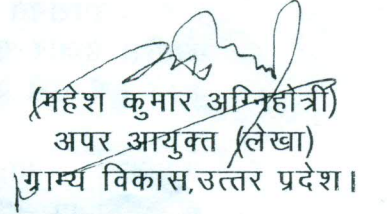 (महेश कुमार अग्निहोत्री)
अपर आयुक्त (लेखा)
ग्राम्य विकास,उत्तर प्रदेश।